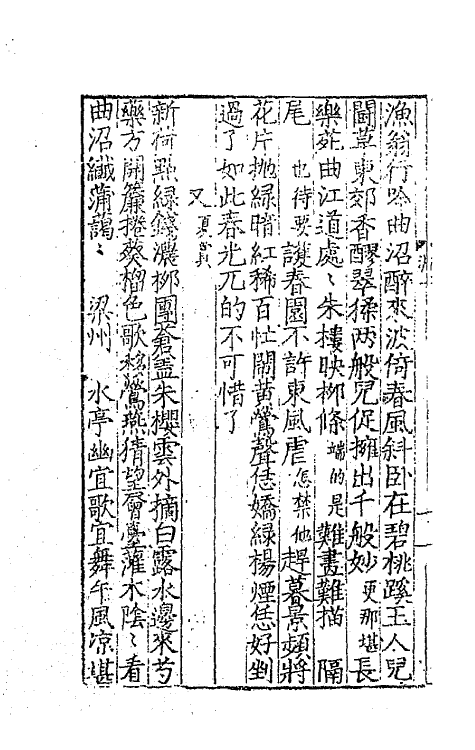 漁翁行吟曲沼醉來倚春風斜卧在碧桃蹊玉人兒
東郊香醪翠揉两般兒促擁出千般妙更那堪長
樂苑曲江道處〻朱樓映柳條端的是難畫難描　隔
尾　也待要護春園不許東風虐怎禁他趕暮景頻將
花片抛綠暗紅稀百忙閙黄鶯聲恁嬌綠楊煙恁好剉
過了如此春光兀的不可惜了
又　夏賞
新荷㸃綠錢濃柳團蒼盖朱櫻雲外摘白露水邊來芍
藥方開簾捲葵榴色歌殘鶯燕猜望層巒灌木陰〻看
曲沼纖蒲藹〻　梁州　水亭幽宜歌宜舞午風凉堪